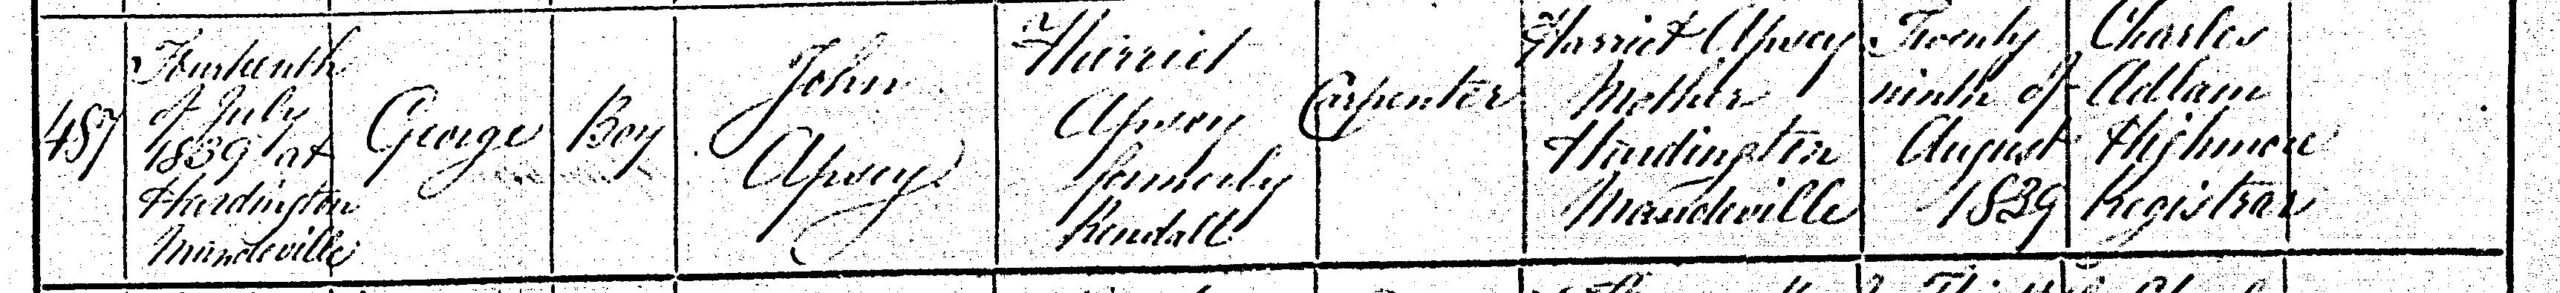 487
Fourteenth
of July
1839 at
Hardington
Mandeville
George
Boy
John
Apsey
Harriet
Apsey
formerly
Rendall
Carpenter
Harriet Apsey
Mother
Hardington
Mandeville
Twenty
ninth of
August
1839
Charles
Adlam
Highmore
Registrar